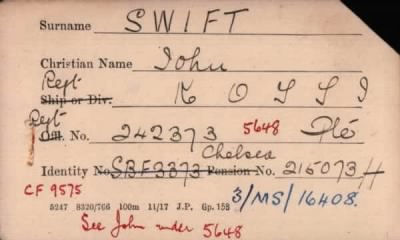 Surname SWIFT
Christian Name John
Regt
Ship or Div.
Regt
Off. No. 242373 5648 Pte
Chelsea
Identity No. SBF3373 Pension No. 215073 H
CF 9575 3/MS/16408.
5247 8320/766 100m 11/17 J.P. Gp. 158
See John under 5648